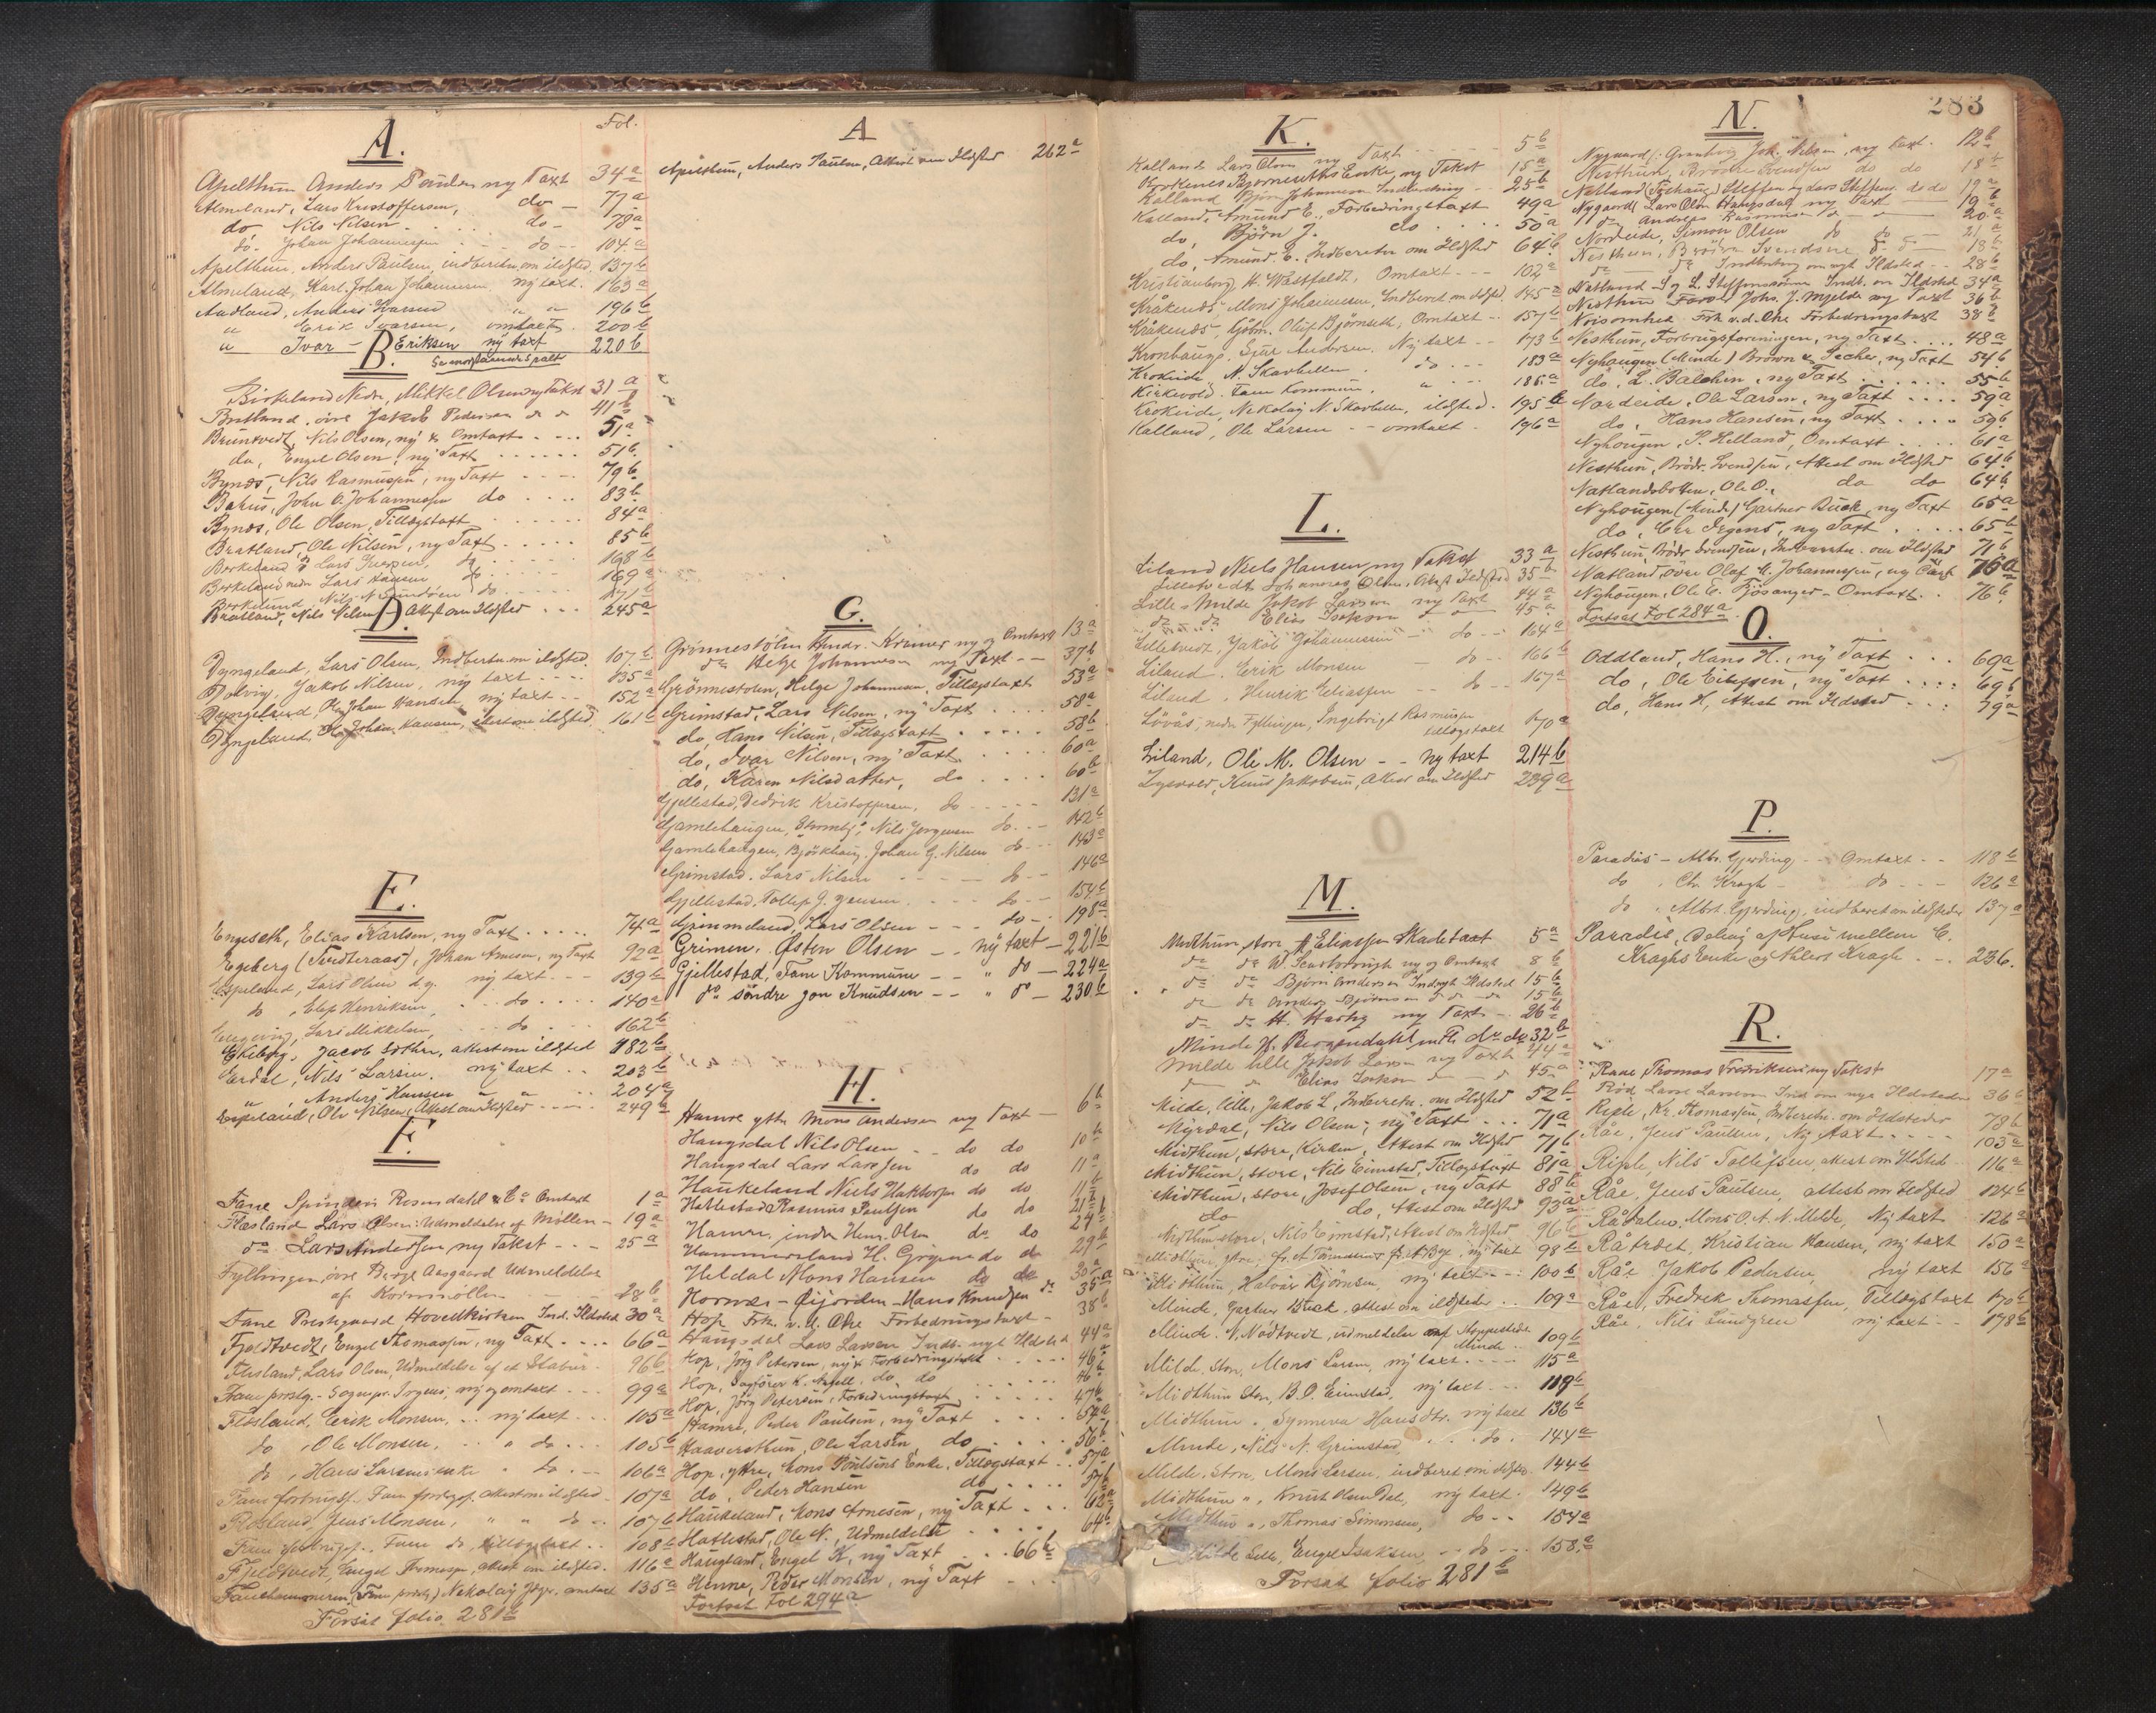 A.
Fol.
Apelthun Anders Paulsen ny Taxt 34a
Almeland, Lars Kristoffersen, do - 77a
do Nils Nilsen do - 78a
do. Johan Johannessen do - 104a
Apelthun. Anders Paulsen, indberetn. om ildsted. 137b
Almeland, Karl Johan Johannesen, ny taxt. 163a
Aadland, Anders Hansen " " 196b
" Erik Ivarsen, omtaxt. 200b
" Ivar - Eriksen ny taxt 220b
B.
Se motstaaende spalt
Birkeland Nedre, Mikkel Olsen ny Takst 31a
Bratland. övre Jakob Pedersen do do 41b
Bruntvedt, Nils Olsen, ny & Omtaxt 51a
do, Engel Olsen, ny Taxt 51b
Bynæs, Nils Rasmussen, ny Taxt 79b
Bahus, John O. Johannessen do 83b
Bynæs, Ole Olsen, Tillægstaxt 84a
Bratland, Ole Nilsen, ny Taxt 85b
Birkeland Lars Iversen, do 168b
Birkeland nedre Lars Hansen do 169a
Birkeland, Nils N. do 171b
Bratland, Nils Nilsen, Attest om Ildsted 245a
D.
Dyngeland, Lars Olsen, Indberetn. om ildsted. 107b
Dolvig, Jakob Nilsen, ny taxt 135a
Dyngeland, Ole Johan Hansen ny taxt 152a
Dyngeland, Ole Johan Hansen, attest om ildsted. 161b
E.
Engeseth, Elias Karlsen, ny Taxt 74a
Egeberg (Tvedteraas), Johan Arnesen, ny Taxt 92a
Espeland, Lars Olsen d.y. ny taxt 139b
do, Elef Henriksen, do 140a
Lars Mikkelsen, do 162b
Ekeberg, Jacob Söthre, attest om ildsted 182b
Eerdal, Nils Larsen. ny taxt 203b
" Anders Hanssen " " 204a
Espeland, Ole Nilsen, Attest om Ildsted 249b
F.
Fane Spinderi Rosendahl & Co Omtaxt 1a
Flæsland Lars Olsen: Udmeldelse af Möllen - 19a
do Lars Anderssen, ny Takst - 25a
Fyllingen, övre Berge Aasgaard Udmeldelse
af Kornmöllen 28b
Fane Prestegaard Hovedkirken Ind. Ildsted 30a
Fjeldtvedt, Engel Thomassen, ny Taxt 66a
Flesland, Lars Olsen, Udmeldelse af et Stabur 96b
Fane prstg. - Sognepr. Irgens, ny og omtaxt 99a
Flesland, Erik Monsen, ny taxt 105a
do, Ole Monsen, " do 105b
do, Hans Larsens enke " do 106a
Fane forbrugsf. Fane prstg., attest om ildsted 107a
Flesland, Jens Monsen, " " do 107b
Fane forbrugsf., Fane do, tillægstaxt 108b
Fjeldtvedt, Engel Thomassen, attest om ildsted. 116a
Fanehammeren (Fane prstg.) Nekolay omtaxt 135a
Forsat folio 281b
A
Apelthun, Anders Paulsen, Attest om Ildsted 262a
G.
Grönnestölen Andr. Krämer ny og Omtaxt 13a
do Helge Johannesen ny Taxt 37b
Grönnestölen, Helge Johannesen, Tillægstaxt 53a
Grimstad, Lars Nilsen, ny Taxt 58a
do, Hans Nilsen, Tillægstaxt 58b
do, Ivar Nilsen, ny Taxt 60a
do, Karen Nilsdatter, do 60b
Gjellestad, Dedrik Kristoffersen, do 131a
Gamlehaugen, Nils Jörgensen do 142b
Gamlehaugen, Björkhaug. Johan G. Nilsen do 143a
Grimstad. Lars Nilsen do 146a
Gjellestad, Tollef J. Jensen, do 154b
Grimmeland, Lars Olsen do 198a
Grimen. Østen Olsen ny taxt - 221b
Gjellestad, Fane Kommune " do - 224a
do söndre Jon Knudsen " do - 230b
H.
Hamre ytre Mons Andersen ny Taxt - 6b
Haugsdal Nils Olsen do do 10b
Haugsdal Lars Larssen do do 11a
Haukeland Niels Haktorsen do do 11b
Hatlestad Rasmus Paulsen do do 21b
Hamre, indre Henr. Olsen do do 24b
Hammersland H. do do 29b
Heldal Mons Hansen do do 30a
Hornæs - Øijorden - Hans Knudsen do 35a
Hop Frk. v. d. Ohe Forbedringstaxt 38b
Haugsdal Lars Larsen Indb. nyt Ildsted 44a
Hop, Jörg Petersen, ny & Forbedringstaxt 46a
Hop, Sagförer K. do do 46b
Hop, Jörg Petersen, Forbedringstaxt 47b
Hamre, Peder Paulsen, ny Taxt 54a
Haaversthun, Ole Larsen, do 56b
Hop, ytre, Mons Poulsens Enke, Tillægstaxt 57a
do, Peder Hansen do 57b
Haukeland, Mons Arnesen, ny Taxt 62a
Hatlestad, Ole N., Udmeldelse 64b
Haugland, Engel K, ny Taxt 66b
Henne, Peder Monsen, ny Taxt
Fortsat Fol 294a
283
K.
Kalland Lars Olsen ny Taxt 5b
Korkenes Bjorneseths Enke, ny Takst 15a
Kalland Björn Johannesen Indberetning 25b
Kalland, Amund E., Forbedringstaxt 49a
do, Björn J. do 50a
do, Amund E. Indberetn om Ildsted 64b
Kristianborg, H. Wastfaldt, Omtaxt 102a
Kråkenæs, Mons Johannesen, Indberet om ildsted. 145a
Kråkenæs, Gjöbn. Oluf Björnseth, Omtaxt 157b
Kronhaug. Sjur Andersen. Ny taxt 173b
Krokeide N. Skarbellen. do 183a
Kirkevold. Fane Kommune. " 186a
Krokeide, Nekolay N. Skarbellen, ildsted. 195b
Kalland, Ole Larsen - omtaxt. 196a
L.
Liland Niels Hansen ny Takst 33a
Lilletvedt Johannes Olsen, Attest Ildsted 35b
Lille Milde Jakob Larsen ny Taxt 44a
do do Elias Isaksen do 45a
Lilletvedt, Jakob Johannessen do 164a
Liland, Erik Monsen do 166b
Liland, Henrik Eliassen do 167a
Lövås, nedre Fyllingen, Ingebrigt Rasmussen
tillægstaxt 170a
Liland, Ole M. Olsen - ny taxt 214b
Lysevær, Knud Jakobsen, Attest om Ildsted 239a
M.
Midthun store A Eliassen Skadetaxt 5a
do do W. Scarborough ny og Omtaxt 8b
do do Björn Andersen Indregt Ildsted 15b
do do Anders Björnsen do do 15b
do do H. Hartvig ny Taxt 26b
Minde H. Bergendahl m Fl do do 32b
Milde lille Jakob Larsen ny Taxt 44a
do Elias Isaksen do 45a
Milde, lille, Jakob L, Indberetn. om Ildsted 52b
Myrdal, Nils Olsen, ny Taxt 71a
Midthun, store, Kirken, Attest om Ildsted 71b
Midthun, store, Nils Eimstad, Tillægstaxt 81a
Midthun, store, Josef Olsen, ny Taxt 88b
do do, Attest om Ildsted 93a
Midthun store, Nils Eimstad, Attest om Ildsted 96b
Midthun, store, ny taxt 98b
Midthun, Halvar Björnsen, ny taxt 100b
Minde, Gartner Buck, attest om ildsteder 109a
Minde. N. Nödtvedt, udmeldelse af Stoppested
Minde 109b
Milde Store, Mons Larsen, ny taxt 115a
Midthun Store, B. O. Eimstad, ny taxt 119b
Midthun ", Synneva Hansdtr. ny taxt 136b
Minde, Nils N. Grimstad, do. 144a
Milde, Store, Mons Larsen, indberet om ildsted. 144b
Midthun ", Knut Olsen Dale, ny taxt. 149b
Midthun ", Thomas Simonsen, do 154a
Milde Lille, Engel Isaksen, do 158a
Forsat folio 281b
N.
Nygaard Joh. Nilsen, ny Taxt. 12b
Nesthun, Brödre Svendsen do do 18b
Natland (Fjehaug) Steffen og Lars Steffens. do do 19a
Nygaard, Lars Olsen Haugsdal ny Taxt 19b
do Andreas Rasmussen do 20a
Nordeide, Simon Olsen do do 21a
Nesthun, Brödre Svendsen do do 18b
do do Indberetning om nyt Ildsted 28b
Natland S og L. Steffensönner Indb. om Ildsted 34a
Nesthun Johs. J. Mjelde ny Taxt 36b
Noisomhed Frk v. d. Ohe Forbedringstaxt 38b
Nesthun, Forbrugsforeningen, ny Taxt 48a
Nyhaugen (Minde) Brown & Pecher, ny Taxt 54b
do, L. Balchin, ny Taxt 55b
Nordeide, Ole Larsen, ny Taxt 59a
do, Hans Hansen, ny Taxt 59b
Nyhougen, P. Helland, Omtaxt 61a
Nesthun, Brödr. Svendsen, Attest om Ildsted 64b
Natlandsbotten, Ole O., do do 64b
Nyhougen (Minde) Gartner Buck, ny Taxt 65a
do, Chr Irgens, ny Taxt 65b
Nesthun, Brödr Svendsen, Indberetn. om Ildsted 71b
Natland, övre Olaf H. Johannessen, ny Taxt 76a
Nyhougen, Ole E. Fjösanger - Omtaxt 76b
Fortsat Fol 284a
O.
Oddland, Hans H., ny Taxt 69a
do, Ole Eilefsen, ny Taxt 69b
do, Hans H, Attest om Ildsted 79a
P.
Paradis - Albr. Gjerding - Omtaxt 118b
do, Chr. Kragh - do 126a
do, Albr. Gjerding, indberet om ildsteder 137a
Paradis, Deling af Huse mellem C.
Kraghs Enke og Ahlert Kragh 236.
R.
Rane, Thomas Fredriksen ny Takst 17a
Röd Lasse Larsen Ind om nye Ildsteder 36b
Riple, Kr. Thomassen, Indberetn. om Ildsteder 78b
Råe, Jens Paulsen, Ny taxt 103a
Riple, Nils Tollefsen, attest om Ildsted 116a
Råe, Jens Paulsen, attest om Ildsted 124b
Rådalen, Mons O. A. N. Milde, Ny taxt 126a
Råtræet, Kristian Hansen, ny taxt 150a
Råe Jakob Pedersen, ny taxt 156a
Råe, Fredrik Thomassen, Tillægstaxt 170b
Råe, Nils Lundgren ny taxt 178b